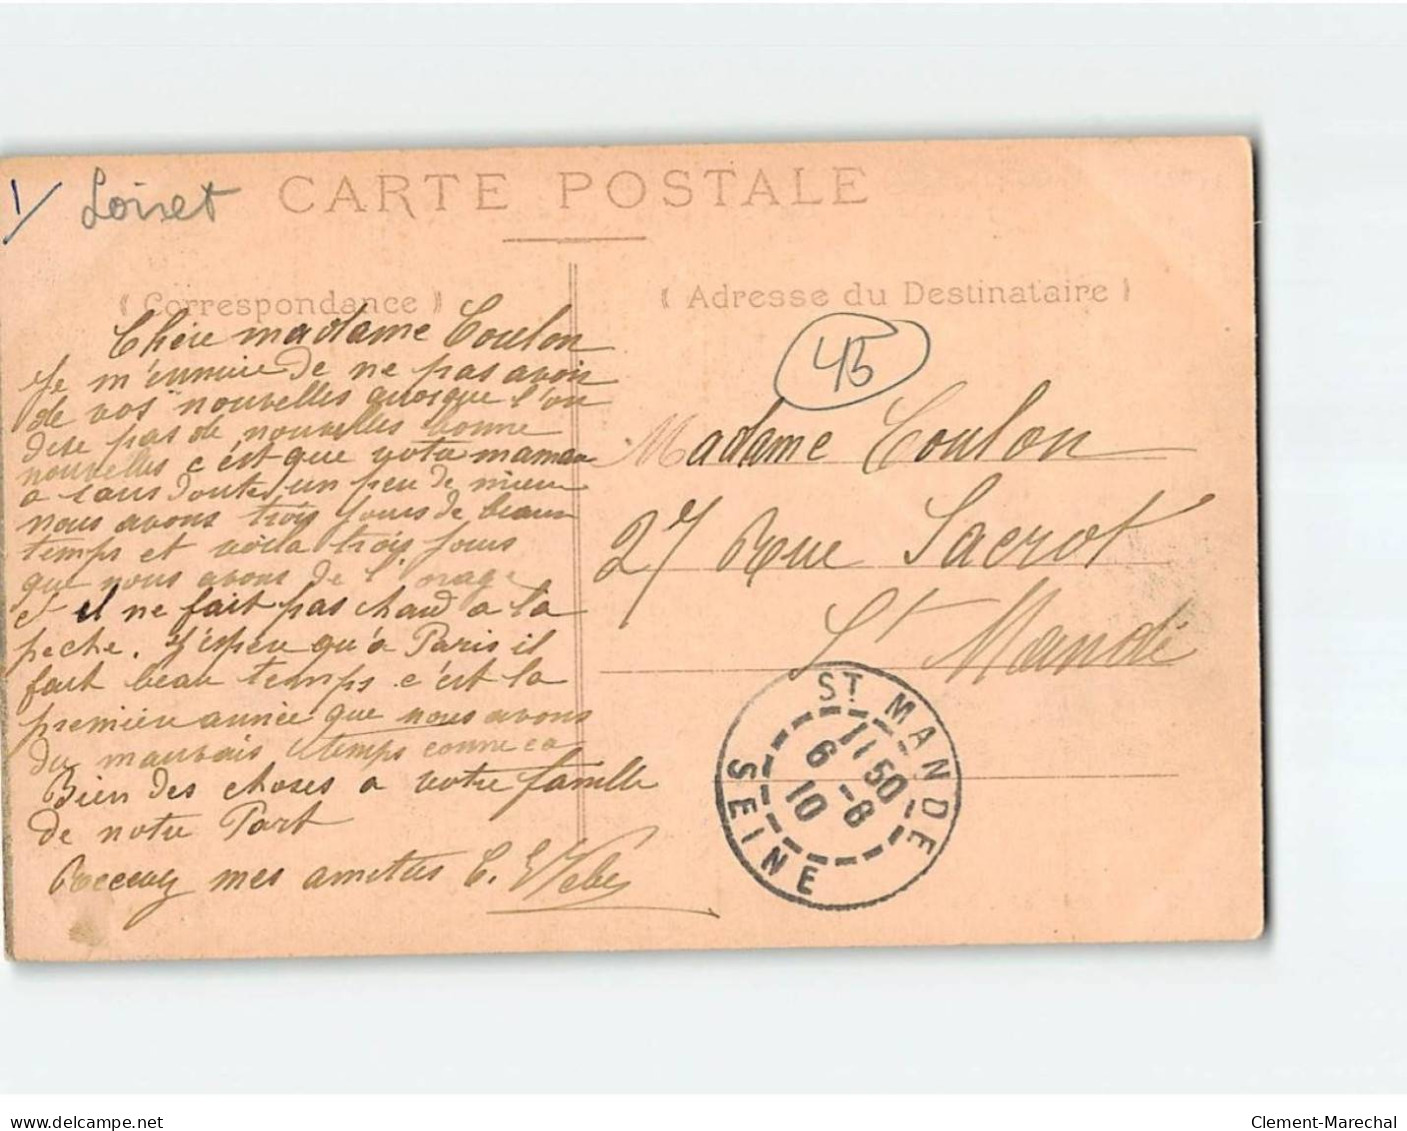 1/ Loiret
CARTE POSTALE
( Correspondance )
( Adresse du Destinataire )
Chère madame Coulon
Je m'ennuie de ne pas avoir
de vos nouvelles quoique l'on
dise pas de nouvelles bonne
nouvelles c'est que votre maman
a sans doute un peu de mieux
nous avons trois jours de beau
temps et voila trois jours
que nous avons de l'orage
et il ne fait pas chaud a la
peche. J'espère qu'a Paris il
fait beau temps c'est la
première année que nous avons
du mauvais temps comme ca
Bien des choses a votre famille
de notre Part
Recevez mes amitiés C.
45
Madame Coulon
27 Rue Sacrot
St Mandé
ST MANDE
11 50
6 - 8
10
SEINE
www.delcampe.net
Clement-Marechal